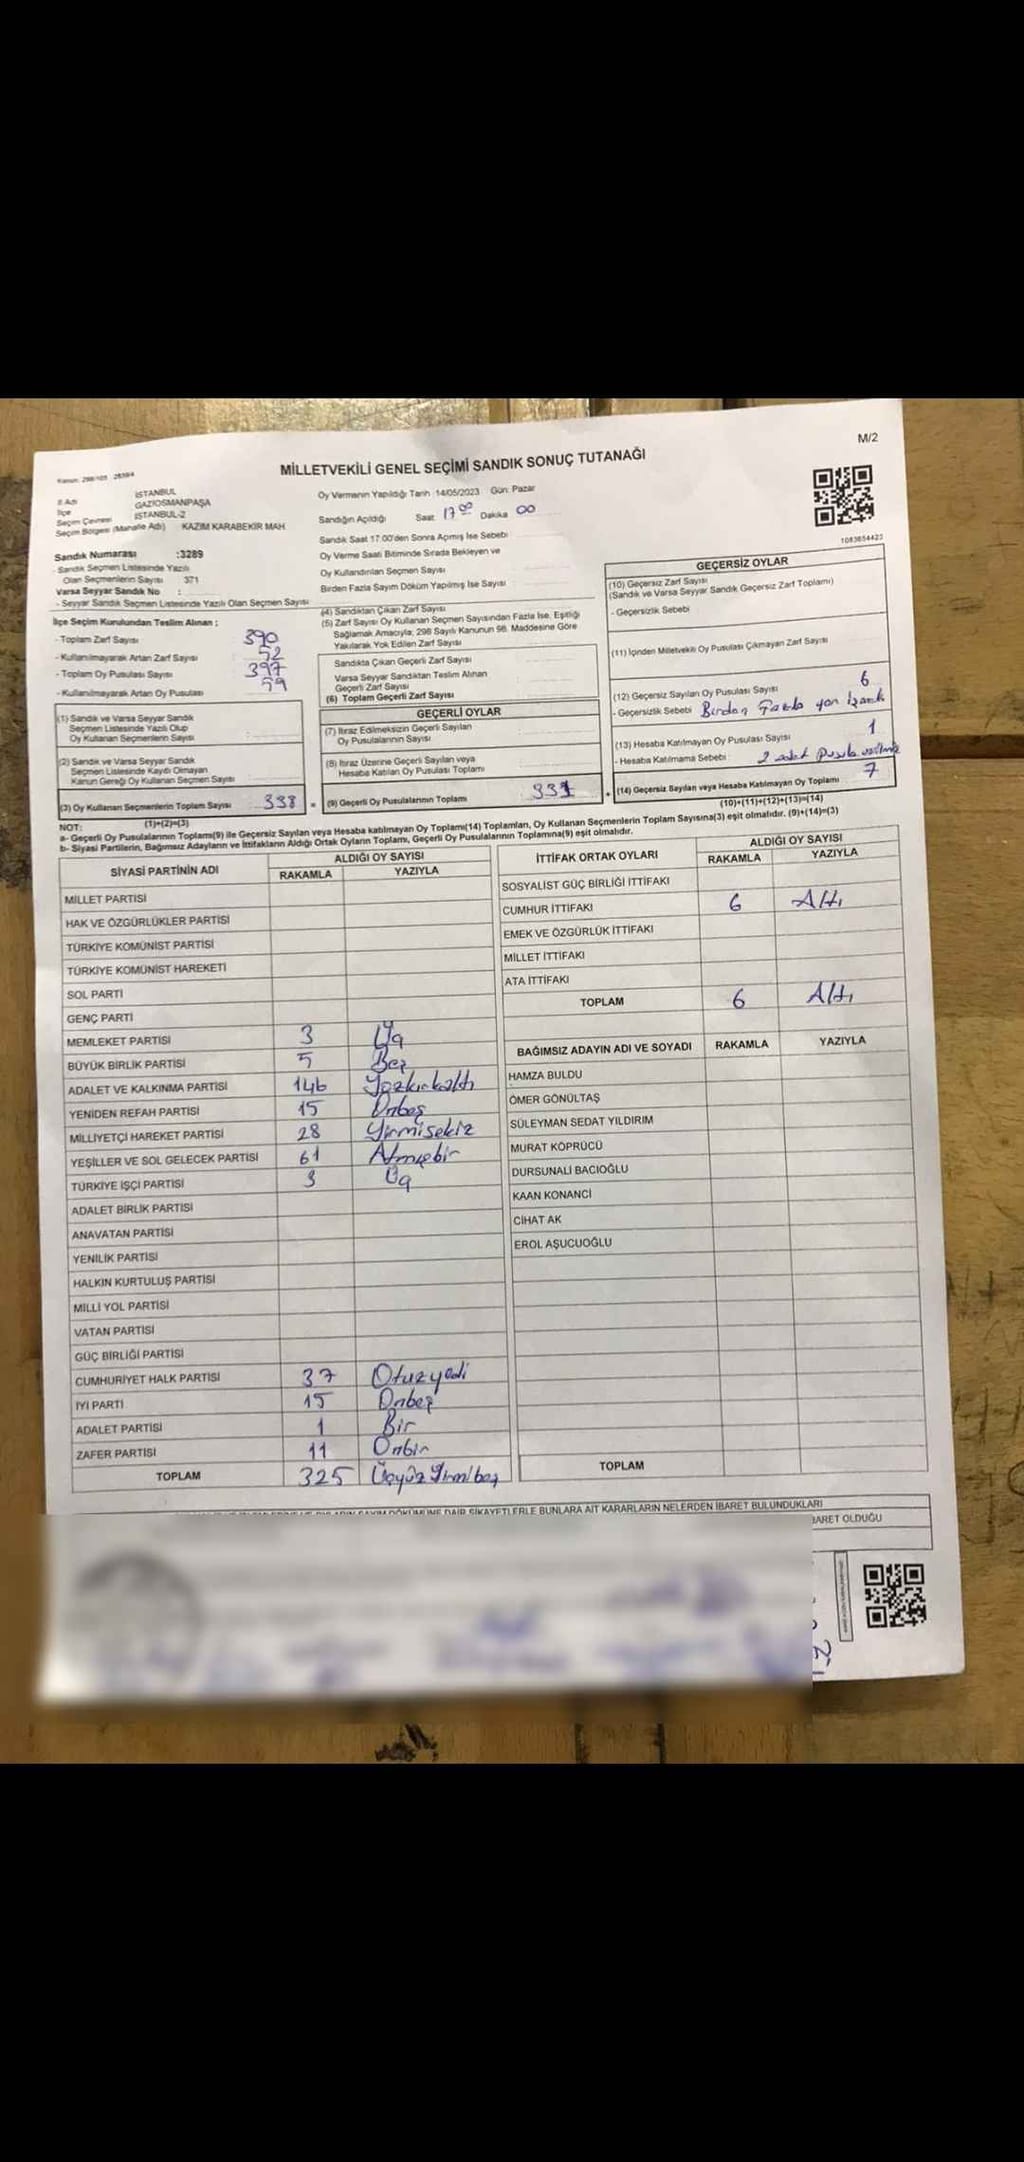 M/2
Kanun: 298/105 - 2839/4
MİLLETVEKİLİ GENEL SEÇİMİ SANDIK SONUÇ TUTANAĞI
İl Adı İSTANBUL
İlçe GAZİOSMANPAŞA
Seçim Çevresi İSTANBUL-2
Seçim Bölgesi (Mahalle Adı) KAZIM KARABEKİR MAH.
Sandık Numarası :3289
- Sandık Seçmen Listesinde Yazılı
Olan Seçmenlerin Sayısı 371
Varsa Seyyar Sandık No :
- Seyyar Sandık Seçmen Listesinde Yazılı Olan Seçmen Sayısı
Oy Vermenin Yapıldığı Tarih :14/05/2023 Gün: Pazar
Sandığın Açıldığı Saat 17 00 Dakika 00
Sandık Saat 17.00'den Sonra Açılmış İse Sebebi
Oy Verme Saati Bitiminde Sırada Bekleyen ve
Oy Kullandırılan Seçmen Sayısı
Birden Fazla Sayım Döküm Yapılmış İse Sayısı
1083654423
İlçe Seçim Kurulundan Teslim Alınan :
- Toplam Zarf Sayısı 390
- Kullanılmayarak Artan Zarf Sayısı 52
- Toplam Oy Pusulası Sayısı 397
- Kullanılmayarak Artan Oy Pusulası 59
(1) Sandık ve Varsa Seyyar Sandık
Seçmen Listesinde Yazılı Olup
Oy Kullanan Seçmenlerin Sayısı :
(2) Sandık ve Varsa Seyyar Sandık
Seçmen Listesinde Kaydı Olmayan
Kanun Gereği Oy Kullanan Seçmen Sayısı
(3) Oy Kullanan Seçmenlerin Toplam Sayısı 338 =
(1)+(2)=(3)
(4) Sandıktan Çıkan Zarf Sayısı
(5) Zarf Sayısı Oy Kullanan Seçmen Sayısından Fazla İse, Eşitliği
Sağlamak Amacıyla; 298 Sayılı Kanunun 98. Maddesine Göre
Yakılarak Yok Edilen Zarf Sayısı
Sandıkta Çıkan Geçerli Zarf Sayısı
Varsa Seyyar Sandıktan Teslim Alınan
Geçerli Zarf Sayısı
(6) Toplam Geçerli Zarf Sayısı
GEÇERLİ OYLAR
(7) İtiraz Edilmeksizin Geçerli Sayılan
Oy Pusulalarının Sayısı
(8) İtiraz Üzerine Geçerli Sayılan veya
Hesaba Katılan Oy Pusulası Toplamı
(9) Geçerli Oy Pusulalarının Toplamı 331 +
GEÇERSİZ OYLAR
(10) Geçersiz Zarf Sayısı
(Sandık ve Varsa Seyyar Sandık Geçersiz Zarf Toplamı)
- Geçersizlik Sebebi
(11) İçinden Milletvekili Oy Pusulası Çıkmayan Zarf Sayısı
(12) Geçersiz Sayılan Oy Pusulası Sayısı 6
- Geçersizlik Sebebi Birden Fazla
(13) Hesaba Katılmayan Oy Pusulası Sayısı 1
- Hesaba Katılmama Sebebi 2 adet pusula
(14) Geçersiz Sayılan veya Hesaba Katılmayan Oy Toplamı 7
(10)+(11)+(12)+(13)=(14)
NOT:
a- Geçerli Oy Pusulalarının Toplamı(9) ile Geçersiz Sayılan veya Hesaba katılmayan Oy Toplamı(14) Toplamları, Oy Kullanan Seçmenlerin Toplam Sayısına(3) eşit olmalıdır. (9)+(14)=(3)
b- Siyasi Partilerin, Bağımsız Adayların ve İttifakların Aldığı Ortak Oyların Toplamı, Geçerli Oy Pusulalarının Toplamına(9) eşit olmalıdır.
SİYASİ PARTİNİN ADI ALDIĞI OY SAYISI
RAKAMLA YAZIYLA
MİLLET PARTİSİ
HAK VE ÖZGÜRLÜKLER PARTİSİ
TÜRKİYE KOMÜNİST PARTİSİ
TÜRKİYE KOMÜNİST HAREKETİ
SOL PARTİ
GENÇ PARTİ
MEMLEKET PARTİSİ 3 Üç
BÜYÜK BİRLİK PARTİSİ 5 Beş
ADALET VE KALKINMA PARTİSİ 146 Yüzkırkaltı
YENİDEN REFAH PARTİSİ 15 Onbeş
MİLLİYETÇİ HAREKET PARTİSİ 28 Yirmisekiz
YEŞİLLER VE SOL GELECEK PARTİSİ 61 Atmışbir
TÜRKİYE İŞÇİ PARTİSİ 3 Üç
ADALET BİRLİK PARTİSİ
ANAVATAN PARTİSİ
YENİLİK PARTİSİ
HALKIN KURTULUŞ PARTİSİ
MİLLİ YOL PARTİSİ
VATAN PARTİSİ
GÜÇ BİRLİĞİ PARTİSİ
CUMHURİYET HALK PARTİSİ 37 Otuzyedi
İYİ PARTİ 15 Onbeş
ADALET PARTİSİ 1 Bir
ZAFER PARTİSİ 11 Onbir
TOPLAM 325 Üçyüz Yirmibeş
İTTİFAK ORTAK OYLARI ALDIĞI OY SAYISI
RAKAMLA YAZIYLA
SOSYALİST GÜÇ BİRLİĞİ İTTİFAKI
CUMHUR İTTİFAKI 6 Altı
EMEK VE ÖZGÜRLÜK İTTİFAKI
MİLLET İTTİFAKI
ATA İTTİFAKI
TOPLAM 6 Altı
BAĞIMSIZ ADAYIN ADI VE SOYADI RAKAMLA YAZIYLA
HAMZA BULDU
ÖMER GÖNÜLTAŞ
SÜLEYMAN SEDAT YILDIRIM
MURAT KÖPRÜCÜ
DURSUNALİ BACIOĞLU
KAAN KONANCİ
CİHAT AK
EROL AŞUCUOĞLU
TOPLAM
SAYIM DÖKÜMÜNE DAİR ŞİKAYETLERLE BUNLARA AİT KARARLARIN NELERDEN İBARET BULUNDUKLARI
OLDUĞU